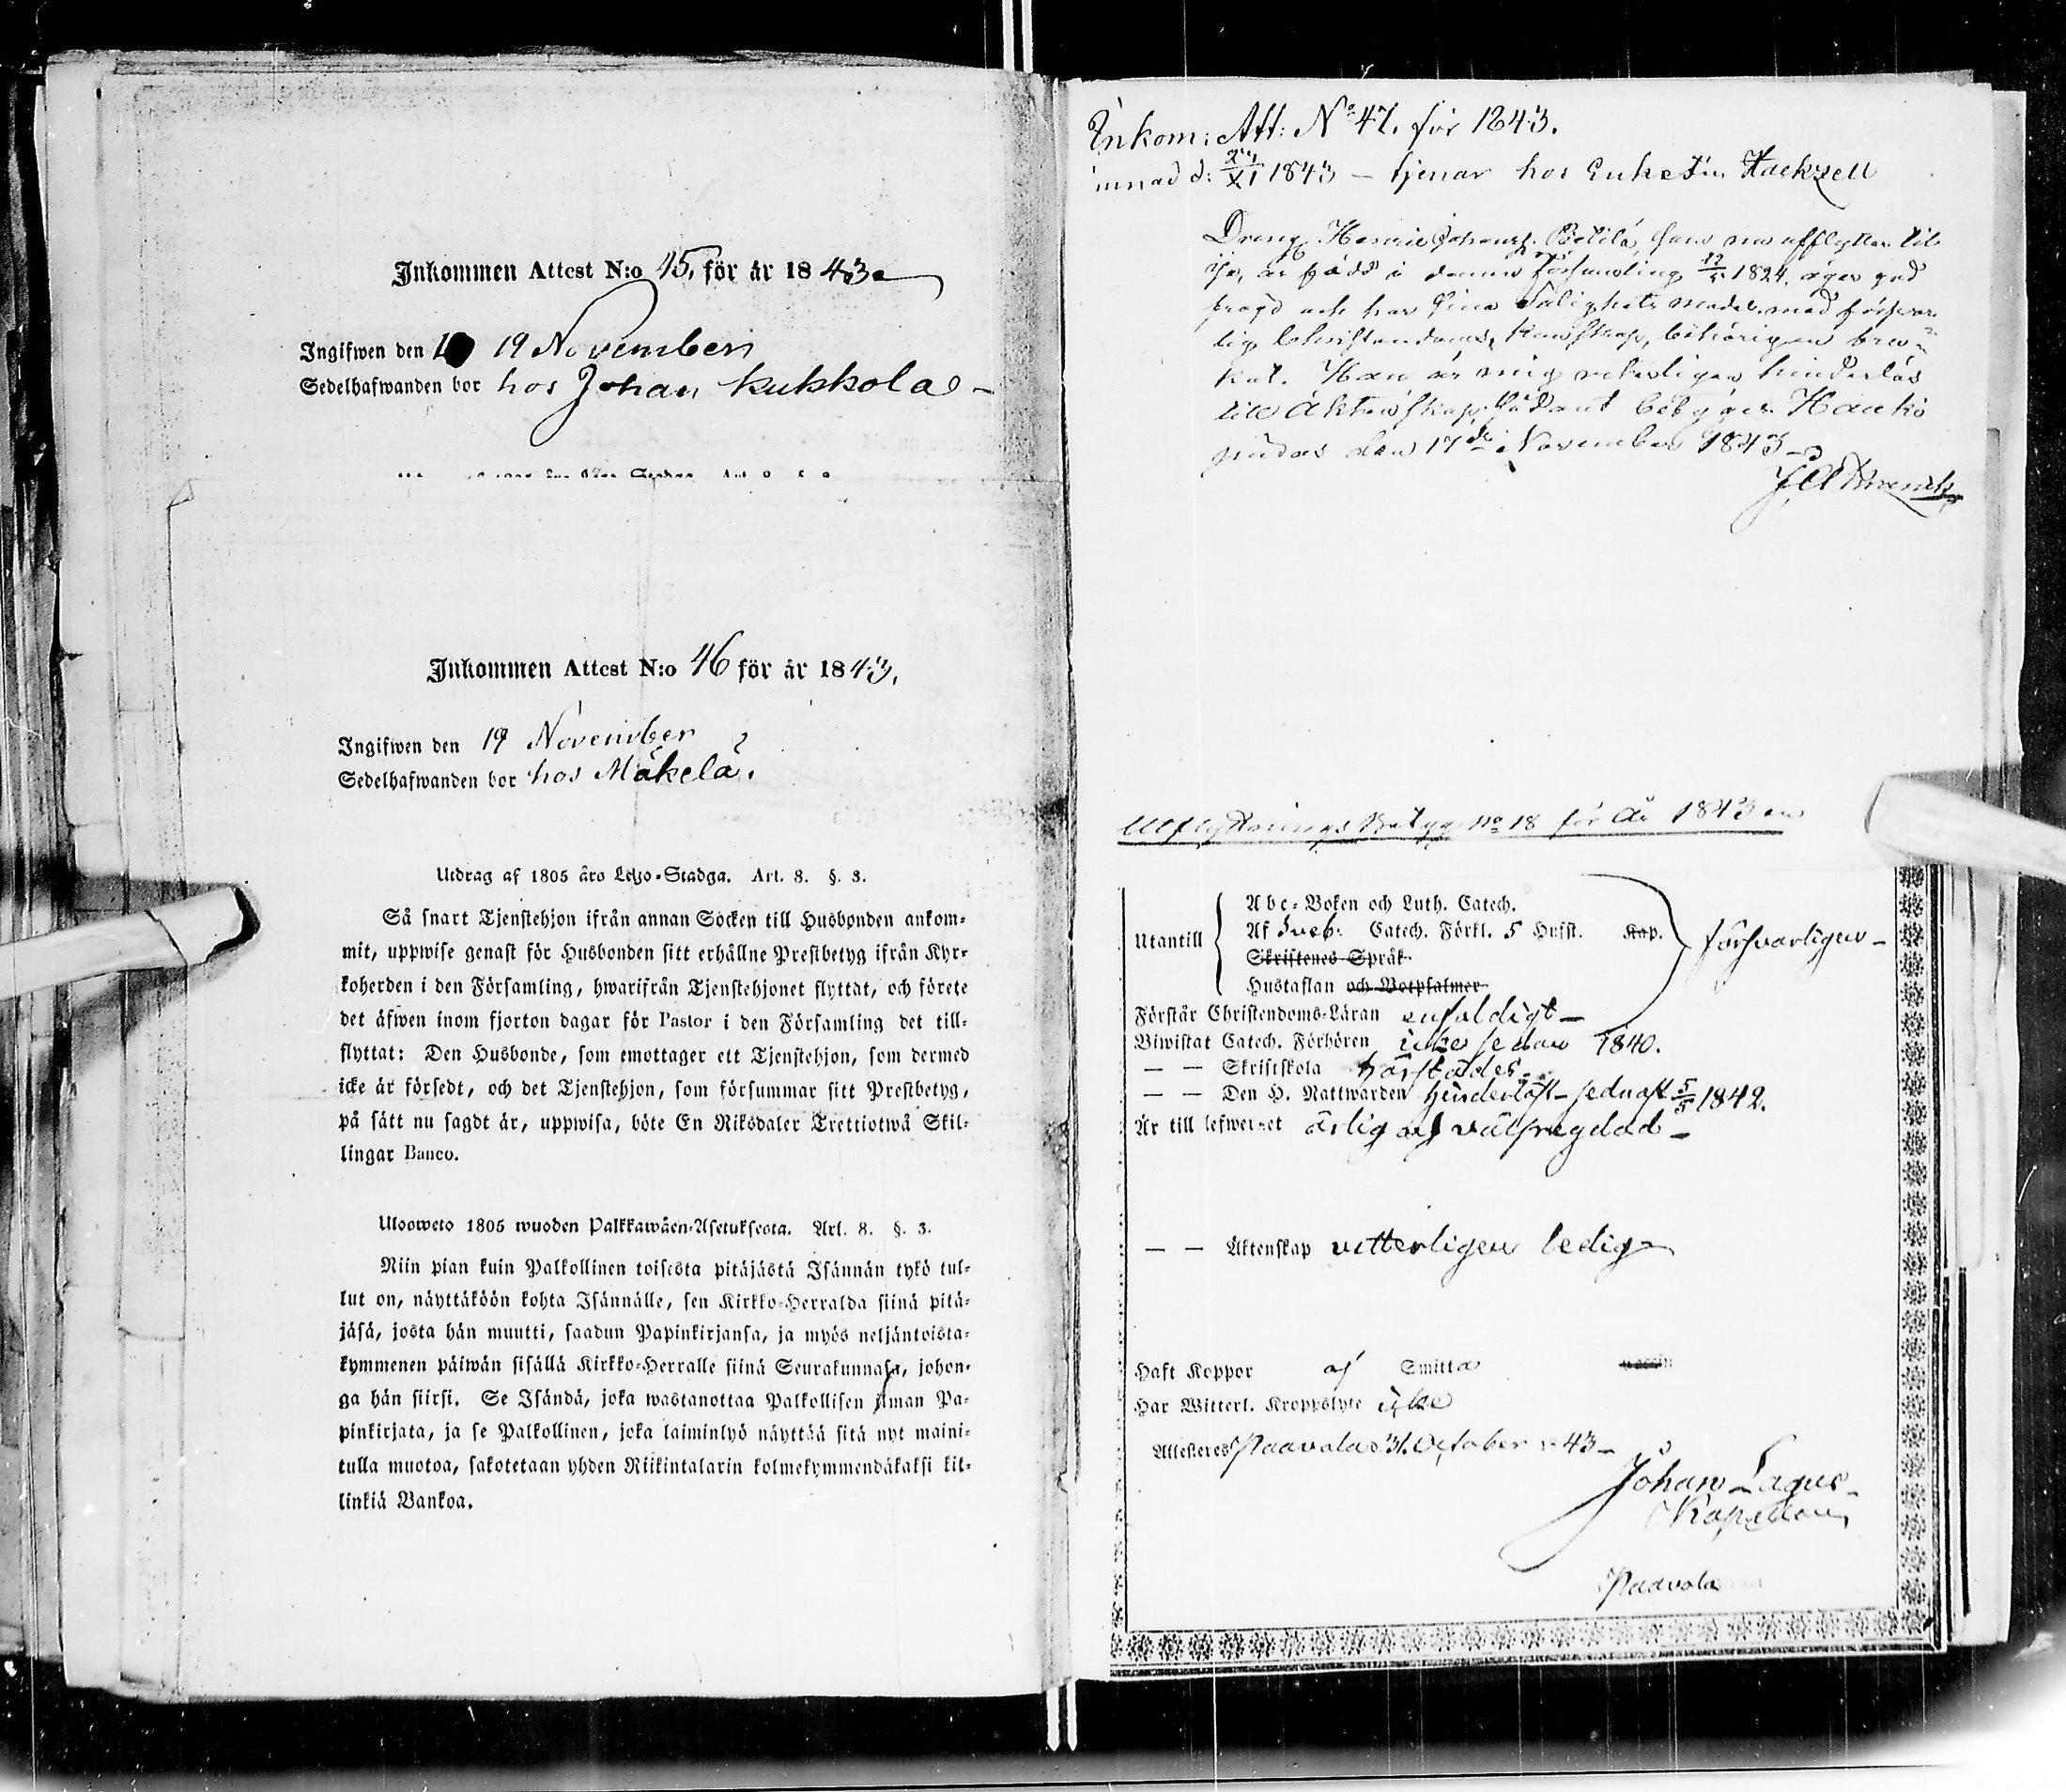 Inkommen Attest N:o 45, för år 1843
Ingifwen den 19 November
Sedelhafwanden bor hos Johan Kukkola -
Inkommen Attest N:o 46 för år 1843.
Ingifwen den 19 November
Sedelhafwanden bor hos Mäkelä.
Utdrag af 1805 års Lego-Stadga. Art. 8. §. 3.
Så snart Tjenstehjon ifrån annan Socken till Husbonden ankom-
mit, uppwise genast för Husbonden sitt erhållne Prestbetyg ifrån Kyr-
koherden i den Församling, hwarifrån Tjenstehjonet flyttat, och förete
det äfwen inom fjorton dagar för Pastor i den Församling det till-
flyttat: Den Husbonde, som emottager ett Tjenstehjon, som dermed
icke är försedt, och det Tjenstehjon, som försummar sitt Prestbetyg,
på sätt nu sagdt är, uppwisa, böte En Riksdaler Trettiotwå Skil-
lingar Banco.
Uloosweto 1805 wuoden Palkkawäen-Asetuksesta. Art. 8. §. 3.
Niin pian kuin Palkollinen toisesta pitäjästä Isännän tykö tul-
lut on, näyttäköön kohta Isännälle, sen Kirkko-Herralda siinä pitä-
jäsä, josta hän muutti, saadun Papinkirjansa, ja myös neljäntoista-
kymmenen päiwän sisällä Kirkko-Herralle siinä Seurakunnasa, johon-
ga hän siirsi. Se Isändä, joka wastanottaa Palkollisen ilman Pa-
pinkirjata, ja se Palkollinen, joka laiminlyö näyttää sitä nyt maini-
tulla muotoa, sakotetaan yhden Riikintalarin kolmekymmendäkaksi kil-
linkiä Bankoa.
Inkom: Att: No 47. för 1843.
innad d: 24/XI 1843 — tjenar hos Enkefru Hackzell
Dreng Henric Johanss. som nu afflyttar till
Ijo, är född i denna församling 12/5 1824, äger god
fregd och har sina Salighets medel med försvar-
lig Christendoms kunskap, behörigen bru-
kat. Han är mig veterligen hinderlös
till Äktenskap. Sådant betygar. Hauki-
pudas den 17de November 1843
Utflyttnings Betyg No 18 för År 1843
Abc-Boken och Luth. Catech.
Utantill Af Sveb. Catech. Förkl. 5 Hufst. Kap. försvarligen -
Skriftenes Språk
Hustaflan och Botpsalmer
Förstår Christendoms-Läran enfaldigt —
Biwistat Catech. Förhören icke sedan 1840.
— — Skriftskola
— — Den H. Nattwarden hinderlöst - sednast 5/5 1842.
Är till lefwernet ärlig och välfregdad —
— — Äktenskap vetterligen ledig
Haft Koppor af Smitta
Har Witterl. Kroppslyte icke
Attesteres Paavola d. 31. October 1843 —
Johan Lagus
Kapellan
Paavola